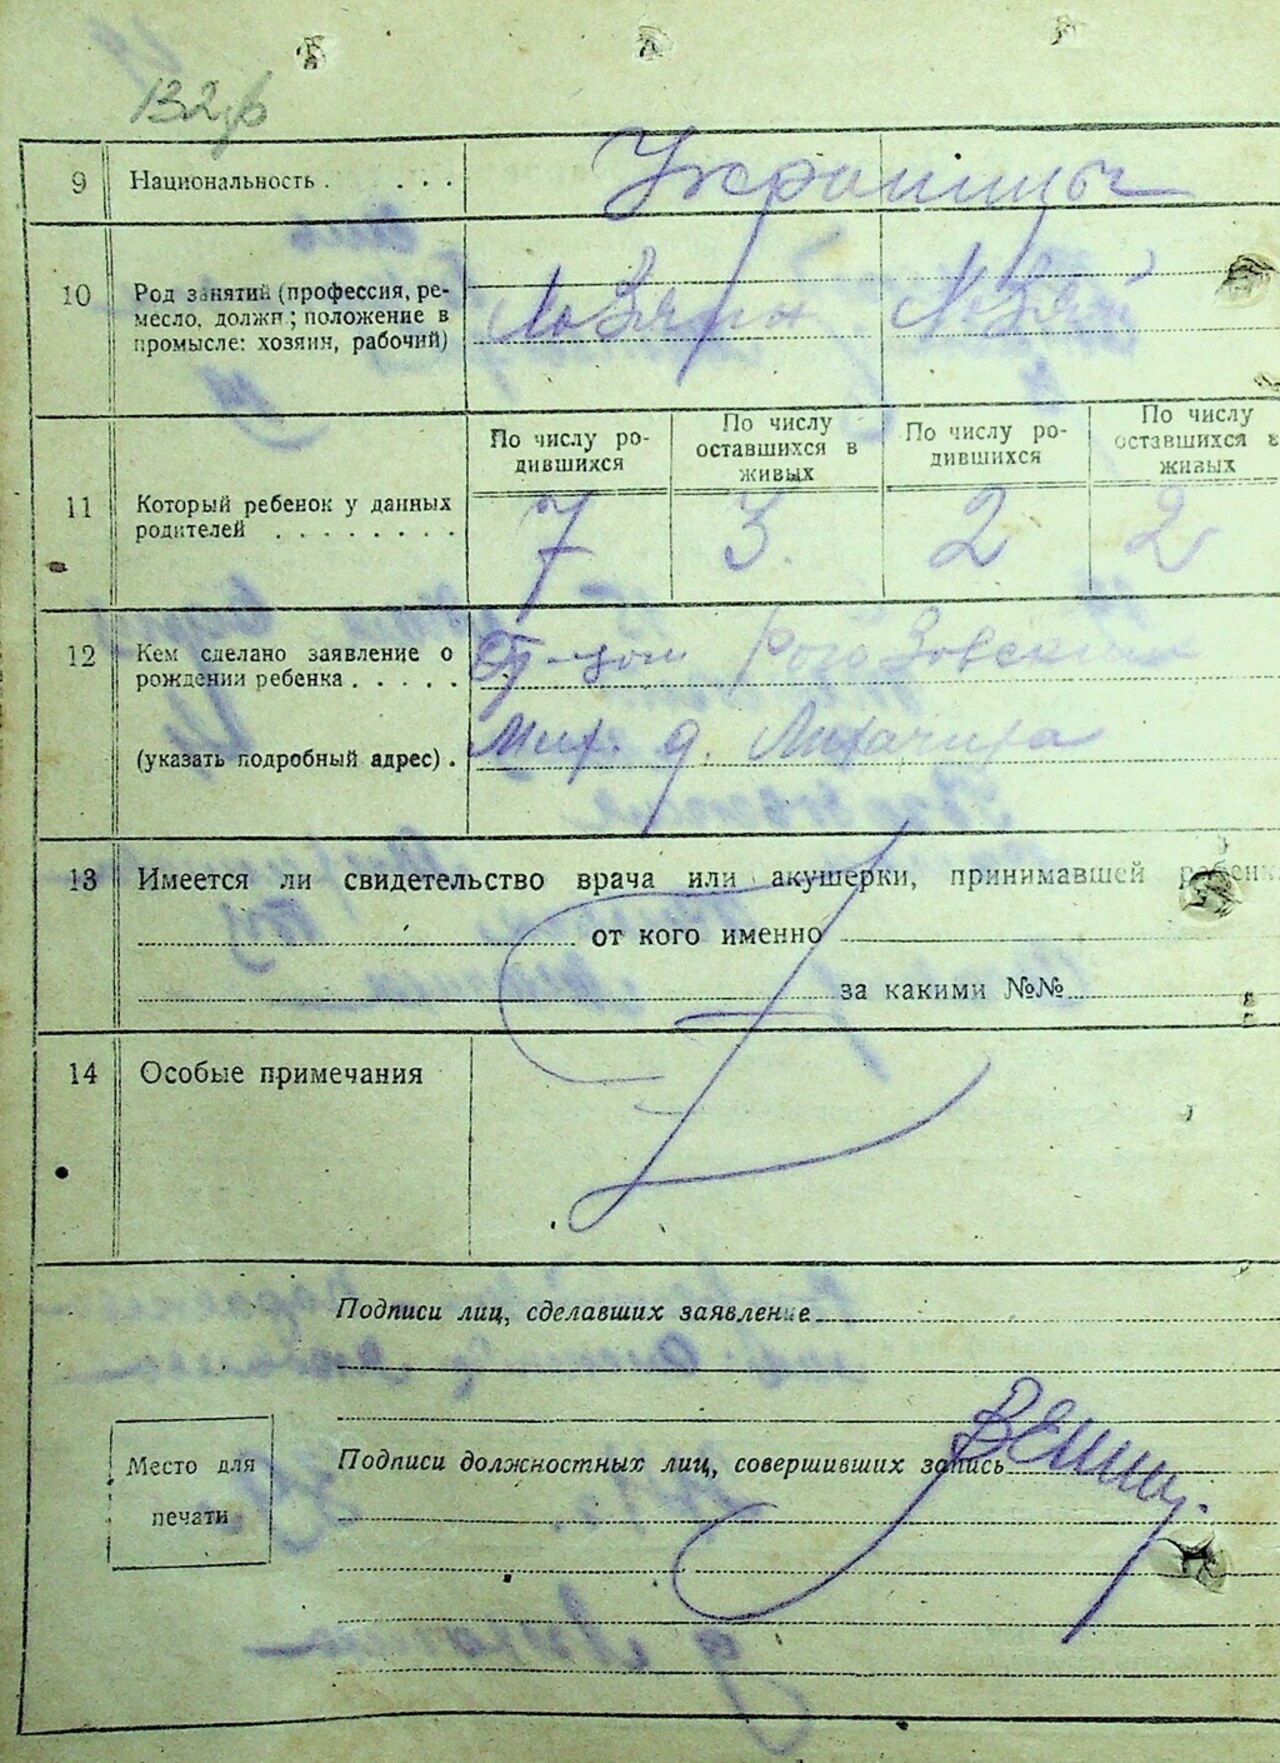 132
9 Национальность . . . . Украинцы
10 Род занятий (профессия, ре-
месло, должн ; положение в
промысле: хозяин, рабочий)
Хозяин Хозяй
По числу ро-
дившихся
По числу
оставшихся в
живых
По числу ро-
дившихся
По числу
оставшихся в
живых
11 Который ребенок у данных
родителей . . . . . . . .
7 3. 2 2
12 Кем сделано заявление о
рождении ребенка . . . . .
(указать подробный адрес) .
Мих. д. Лихачиха
13 Имеется ли свидетельство врача или акушерки, принимавшей ребенк
от кого именно
за какими №№
14 Особые примечания
Подписи лиц, сделавших заявление
Место для
печати
Подписи должностных лиц, совершивших запись